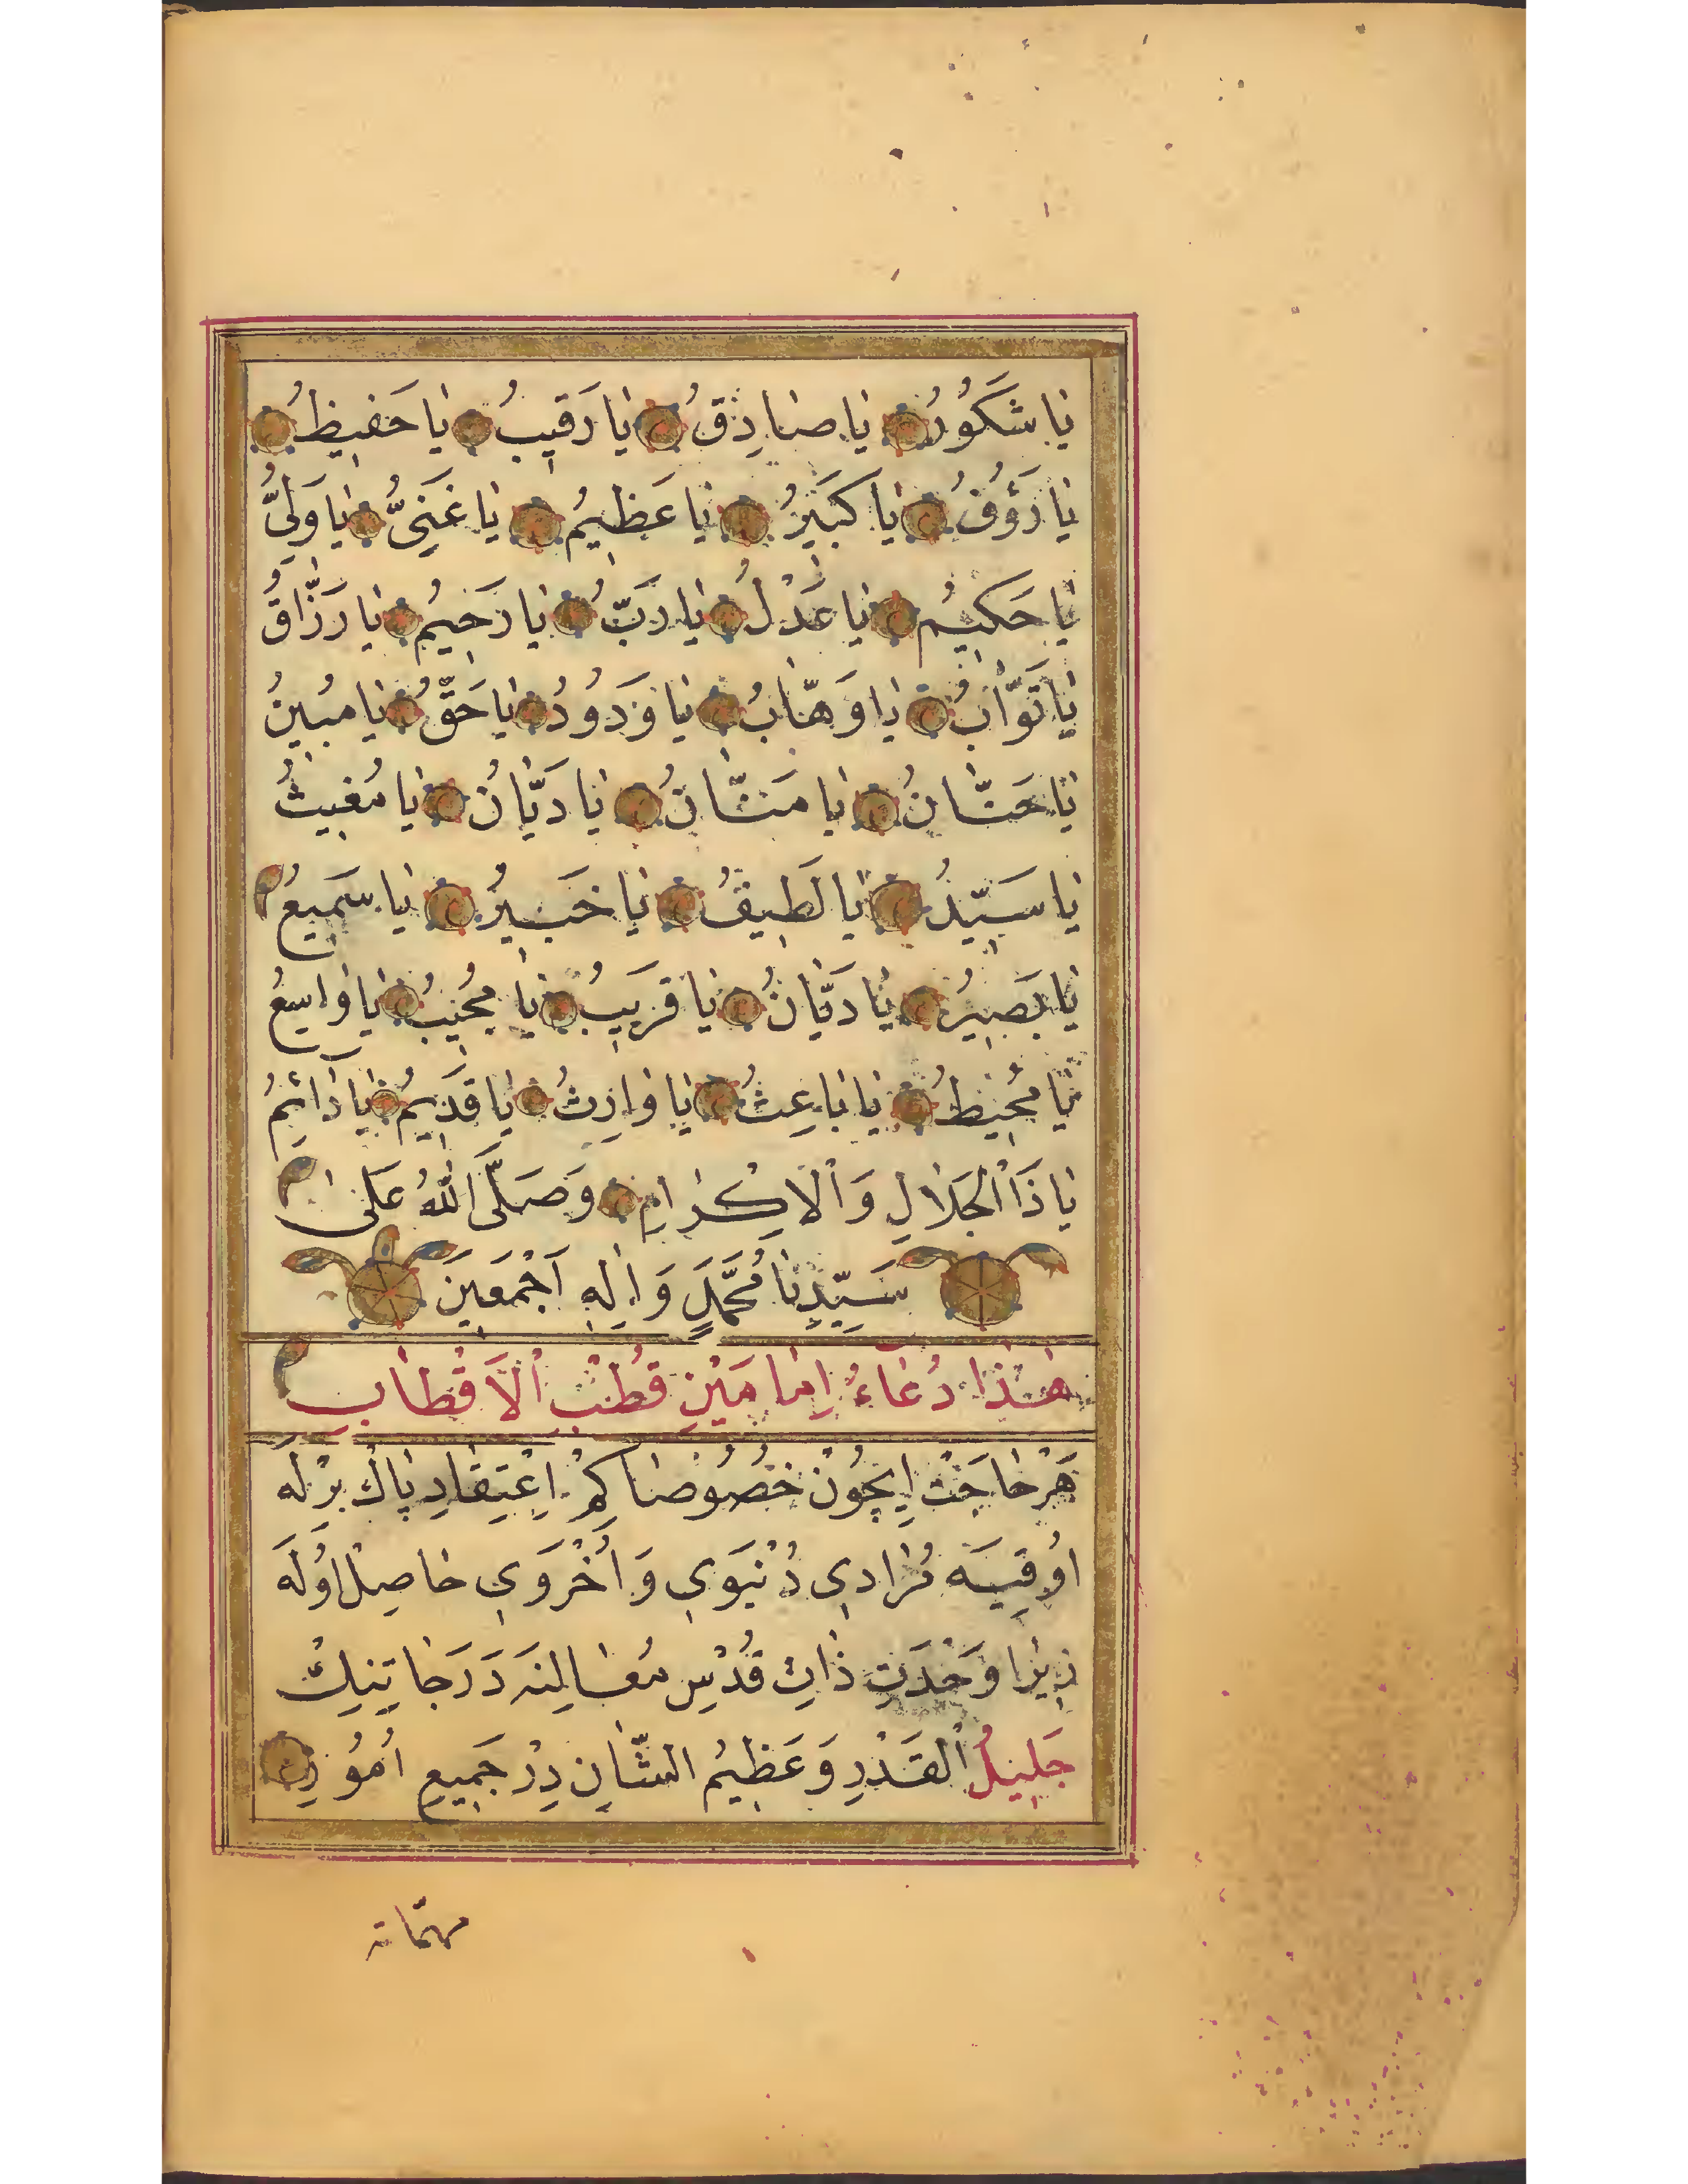 يَا شَكُورُ يَا صَادِقُ يَا رَقِيبُ يَا حَفِيظُ
يَا رَؤُفُ يَا كَبِيرُ يَا عَظِيمُ يَا غَنِىُّ يَا وَلِىُّ
يَا حَكِيمُ يَا عَدْلُ يَا رَبُّ يَا رَحِيمُ يَا رَزَّاقُ
يَا تَوَّابُ يَا وَهَّابُ يَا وَدُودُ يَا حَقُّ يَا مُبِينُ
يَا حَنَّانُ يَا مَنَّانُ يَا دَيَّانُ يَا مُغِيثُ
يَا سَيِّدُ يَا لَطِيفُ يَا خَبِيرُ يَا سَمِيعُ
يَا بَصِيرُ يَا دَيَّانُ يَا قَرِيبُ يَا مُجِيبُ يَا وَاسِعُ
يَا مُحِيطُ يَا بَاعِثُ يَا وَارِثُ يَا قَدِيمُ يَا دَائِمُ
يَا ذَا الْجَلَالِ وَالْاِكْرَامِ وَصَلَّى اللّٰهُ عَلٰى
سَيِّدِنَا مُحَمَّدٍ وَاٰلِهِ اَجْمَعِينَ
هٰذَا دُعَاءُ اِمَامَيْنِ قُطْبُ الْاَقْطَابِ
هَرْ حَاجَتْ اِيچُونْ خُصُوصَا كِمْ اِعْتِقَادِ پَاكْ بِرْلَه
اوُقِيَه مُرَادِي دُنْيَوِي وَ اُخْرَوِي حَاصِلْ اوُلَه
زِيرَا وَحْدَتِ ذَاتِ قُدْسِ مَعَالِنَه دَرَجَاتِنِكْ
جَلِيلُ الْقَدْرِ وَعَظِيمُ الشَّانِ دِرْ جَمِيعِ اُمُورِنْ
مهمّاته